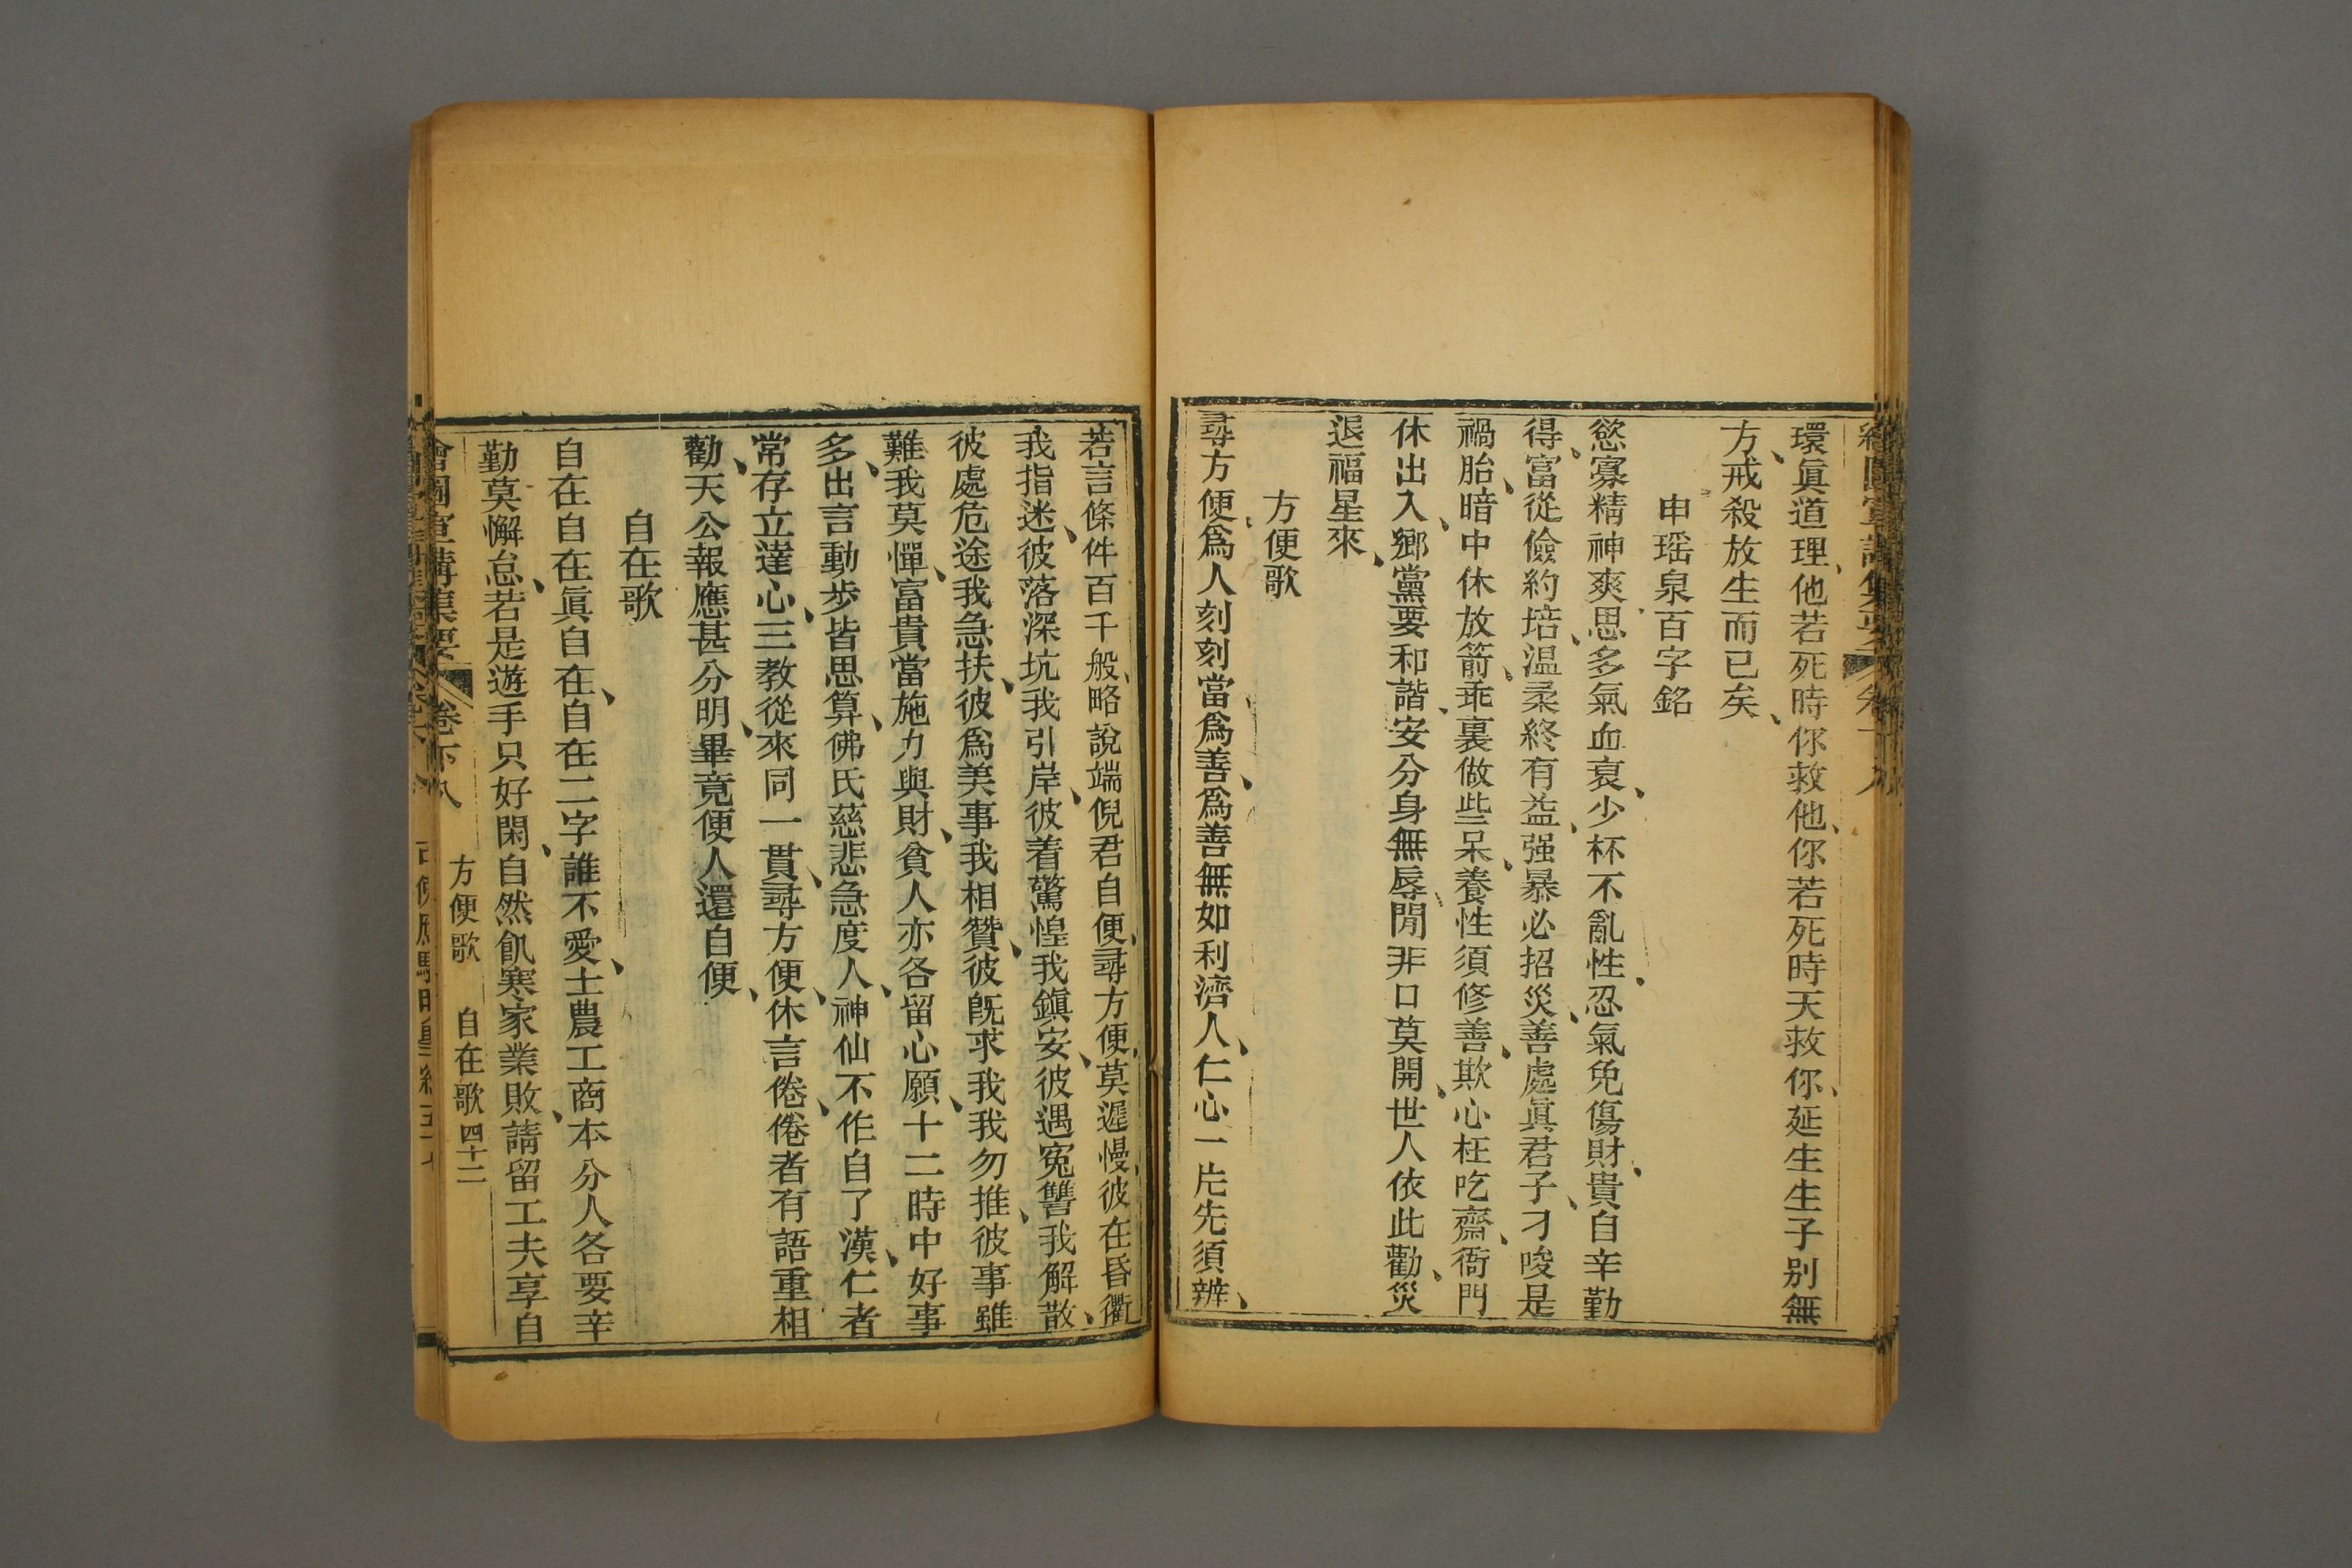 環眞道理、他若死時你救他、你若死時天救你、延生生子别無
方、戒殺放生而已矣、
申瑶泉百字銘
慾寡精神爽、思多氣血衰、少杯不亂性、忍氣免傷財、貴自辛勤
得、富從儉約培、温柔終有益、强暴必招災、善處眞君子、刁唆是
禍胎、暗中休放箭、乖裏做些呆、養性須修善、欺心枉吃齋、衙門
休出入、鄉黨要和諧、安分身無辱、閒非口莫開、世人依此勸、災
退福星來、
方便歌
尋方便、爲人刻刻當爲善、爲善無如利濟人、仁心一片先須辨、
若言條件百千般、略說端倪君自便、尋方便、莫遲慢、彼在昏衢
我指迷、彼落深坑我引岸、彼着驚惶我鎭安、彼遇寃讐我解散、
彼處危途我急扶、彼爲美事我相贊、彼旣求我我勿推、彼事雖
難我莫憚、富貴當施力與財、貧人亦各留心願、十二時中好事
多、出言動步皆思算、佛氏慈悲急度人、神仙不作自了漢、仁者
常存立達心、三教從來同一貫、尋方便、休言倦、倦者有語重相
勸、天公報應甚分明、畢竟便人還自便、
自在歌
自在自在眞自在、自在二字誰不愛、士農工商本分人各要辛
勤莫懈怠、若是遊手只好閑、自然飢寒家業敗、請留工夫享自
會圖宣講集要 卷下八 方便歌 自在歌 四十二